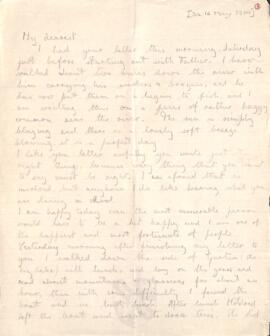 [Sat 16 May 1914]
My dearest
I had your letter this morning, Saturday
just before starting out with Father. I have
walked about two miles down the river with
him carrying his waders & brogues and he
has now put them on & begun to fish and I
am writing this on a piece of rather boggy
common near the river. The sun is simply
blazing and there is a lovely soft breeze
blowing, it is a perfect day.
I like your letter awfully you write just the
right things because any thing that you want
to say must be right. I am afraid that is
involved, but anyhow I do like hearing what you
are doing in
I am happy today even the most miserable person
would have to be a bit happy and I am one of
the happiest and most fortunate of people.
Yesterday morning after finishing my letter to
you I walked down the side of
with lunch, and lay on the grass and
read about mountains & for about an
hour, then with some difficulty I found the
boat and we had lunch. After lunch
left the boat and went to some trees. He had